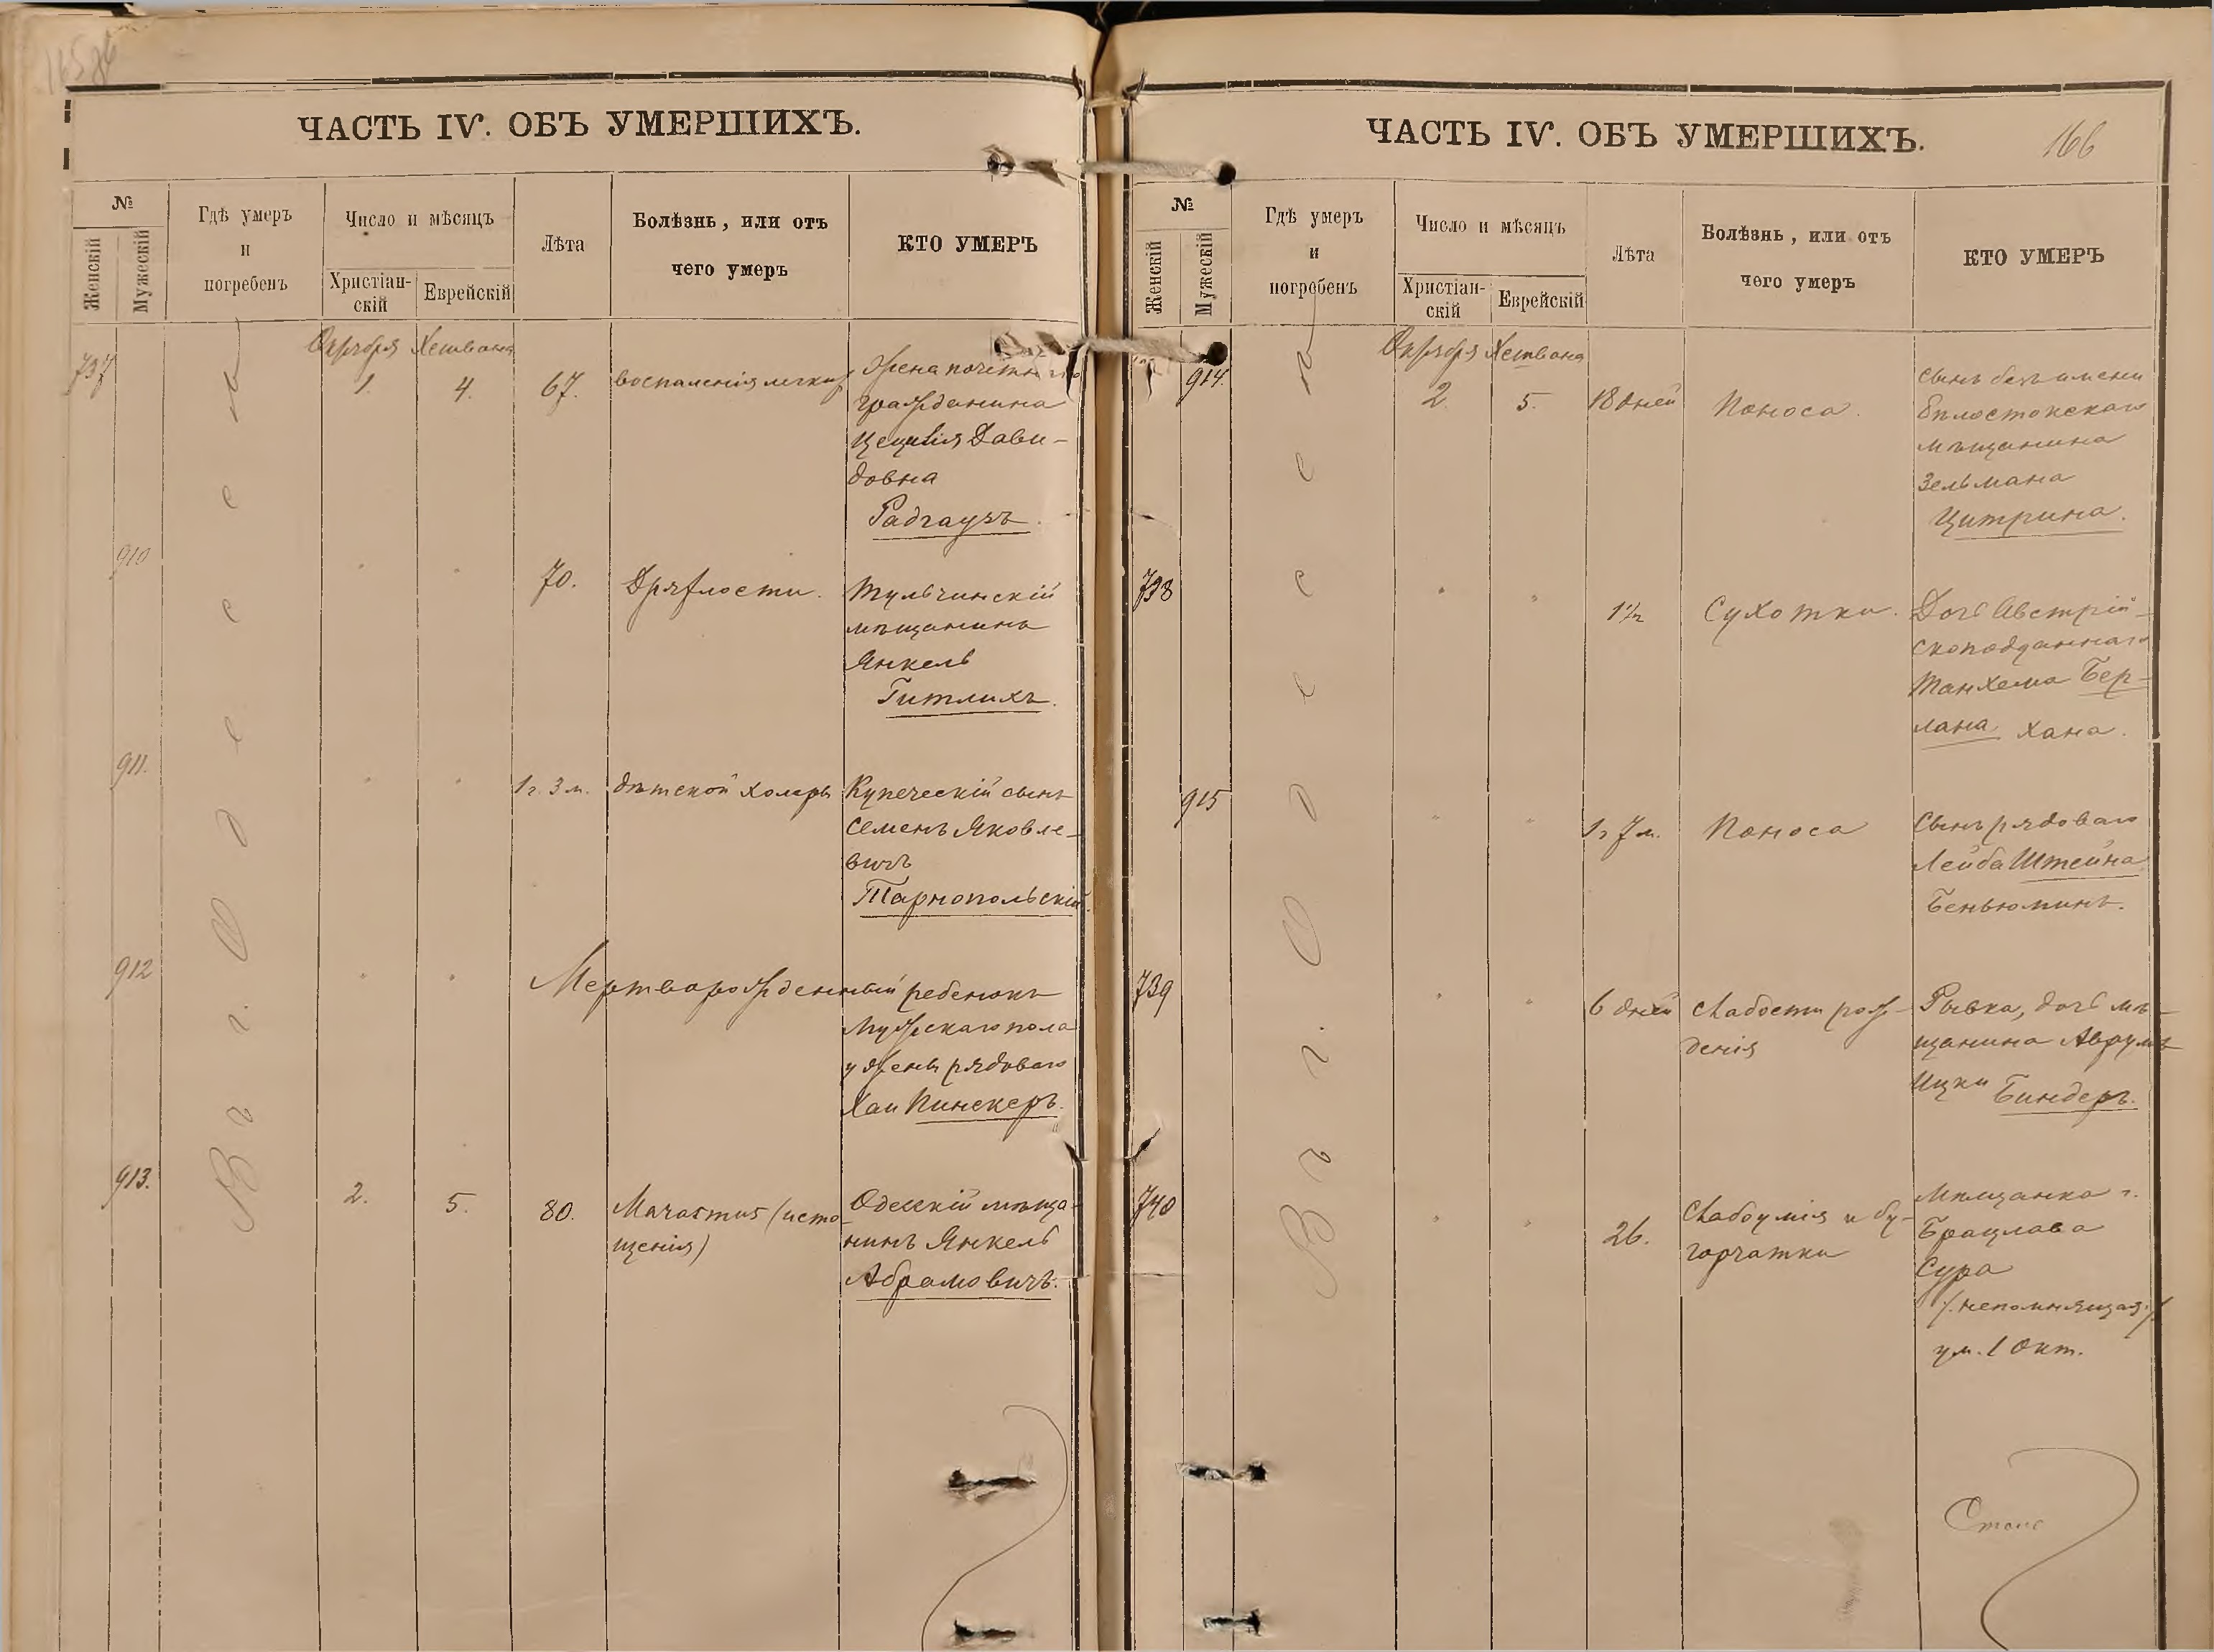 165об
ЧАСТЬ IV. ОБЪ УМЕРШИХЪ.
№
Женскій
Мужескій
Гдѣ умеръ
и
погребенъ
Число и мѣсяцъ
Христіан-
скій
Еврейскій
Лѣта
Болѣзнь, или отъ
чего умеръ
КТО УМЕРЪ
Въ г. Одессѣ
Октября Хешвана
737
1.
4.
67.
воспаленія легкихъ
Жена почетнаго
гражданина
Цецилія Дави-
довна
Радгаузъ.
910
"
"
70.
Дряхлости.
Тульчинскій
мѣщанинъ
Янкель
Гитлихъ.
911.
"
"
1 г. 3 м.
дѣтской холеры
Купеческій сынъ
Семенъ Яковле-
вичъ
Тарнопольскій.
912
"
"
Мертворожденный ребенокъ
мужскаго пола
у жены рядоваго
Хаи Пинскеръ.
913.
2.
5.
80.
Marasmus (исто-
щенія)
Одесскій мѣща-
нинъ Янкель
Абрамовичъ.
ЧАСТЬ IV. ОБЪ УМЕРШИХЪ.
166
№
Женскій
Мужескій
Гдѣ умеръ
и
погребенъ
Число и мѣсяцъ
Христіан-
скій
Еврейскій
Лѣта
Болѣзнь, или отъ
чего умеръ
КТО УМЕРЪ
Въ г. Одессѣ
Октября Хешвана
914.
2.
5.
18 дней
Поноса.
сынъ безъ имени
Бѣлостокскаго
мѣщанина
Зельмана
Цитрина.
738
"
"
1½
Сухотки.
Дочь Австрій-
скоподданнаго
Танхема Бер-
лана Хана.
915
"
"
1 г 7 м.
Поноса
Сынъ рядоваго
Лейба Штейна
Беньюминъ.
739
"
"
6 дней
слабости рож-
денія
Рывка, дочь мѣ-
щанина Аврумъ
Ицки Биндеръ.
740
"
"
26.
Слабоумія и бу-
горчатки
Мѣщанка г.
Брацлава
Сура
/.непомнящая./
ум. 1 Окт.